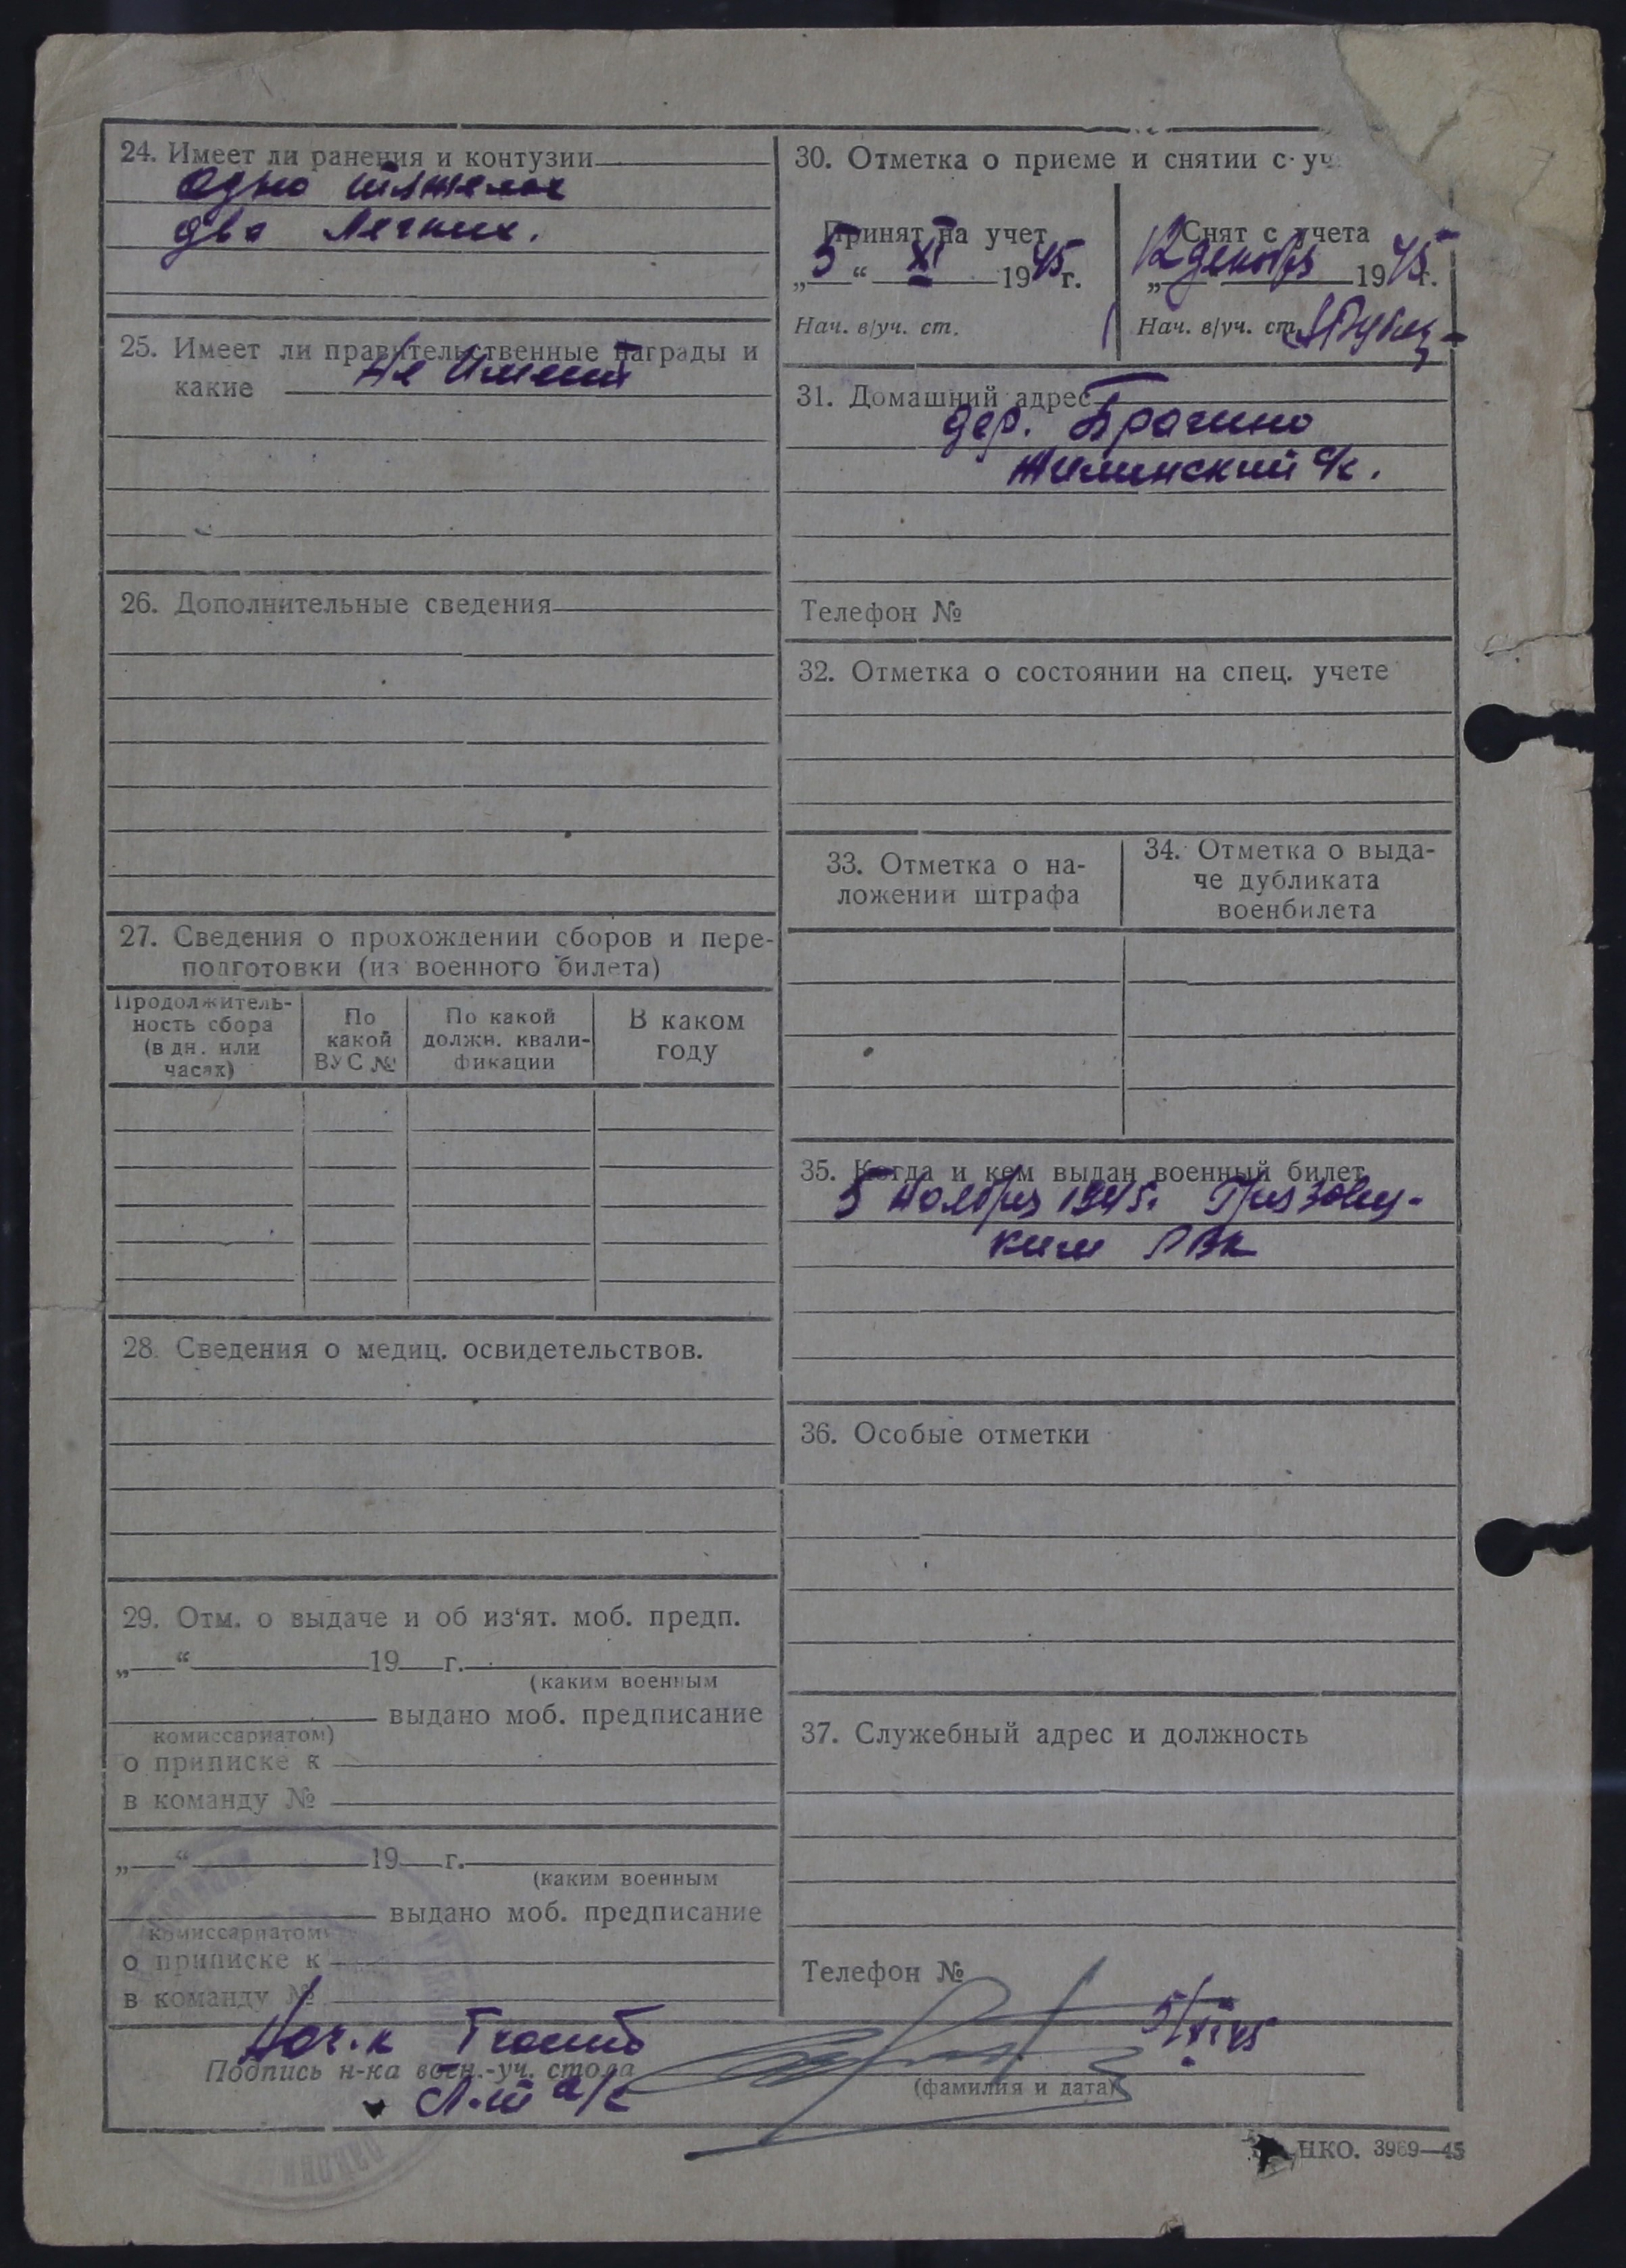 24. Имеет ли ранения и контузии
одно тяжелое
два легких.
25. Имеет ли правительственные награды и
какие Не имеет
26. Дополнительные сведения
27. Сведения о прохождении сборов и пере-
подготовки (из военного билета)
Продолжитель-
ность сбора
(в дн. или
часах)
По
какой
ВУС №
По какой
должн. квали-
фикации
В каком
году
28. Сведения о медиц. освидетельствов.
29. Отм. о выдаче и об из‘ят. моб. предп.
„ “ 19 г.
(каким военным
выдано моб. предписание
комиссариатом)
о приписке к
в команду №
„ “ 19 г.
(каким военным
выдано моб. предписание
комиссариатом
о приписке к
в команду №
30. Отметка о приеме и снятии с уч
Принят на учет
„5“ XI 1945 г.
Нач. в/уч. ст.
Снят с учета
„12 декабря 1945 г.
Нач. в/уч. ст.
31. Домашний адрес
дер. Брагино
Жилинский с/с.
Телефон №
32. Отметка о состоянии на спец. учете
33. Отметка о на-
ложении штрафа
34. Отметка о выда-
че дубликата
военбилета
35. Когда и кем выдан военный билет
5 Ноября 1945г. Грязовец-
ким РВК
36. Особые отметки
37. Служебный адрес и должность
Телефон №
Нач.к
Подпись н-ка воен.-уч. стола
Л-т а/с
5/XI 45
(фамилия и дата)
НКО. 3969—45